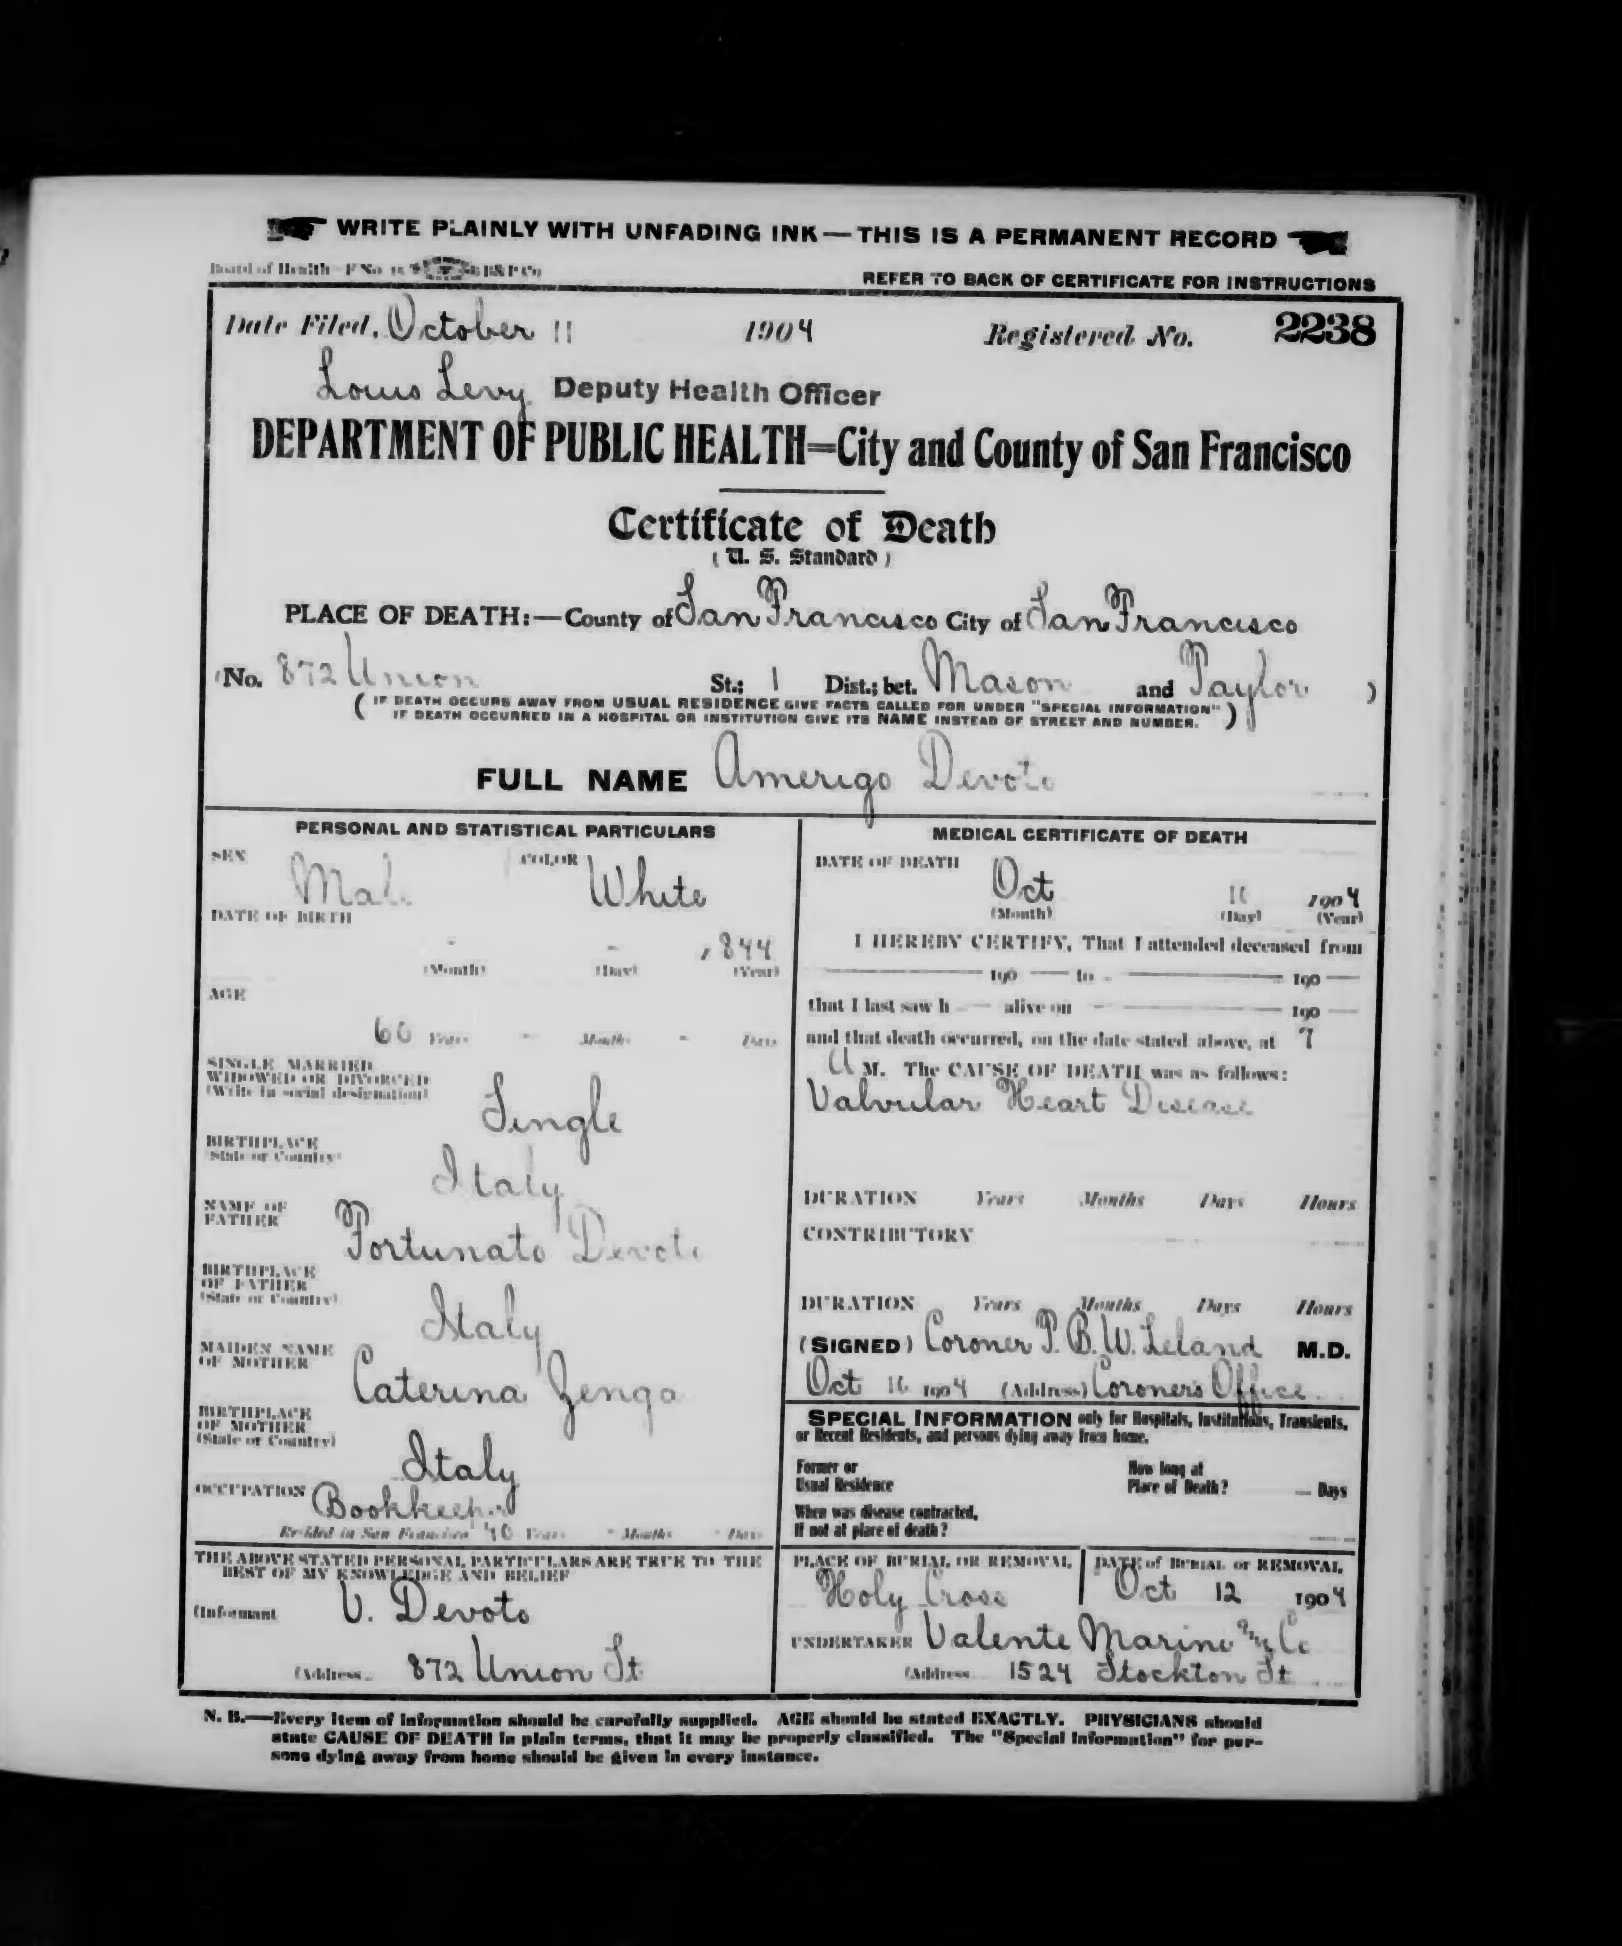 WRITE PLAINLY WITH UNFADING INK—THIS IS A PERMANENT RECORD
Board of Health—F No. 15 B&P Co
REFER TO BACK OF CERTIFICATE FOR INSTRUCTIONS
Date Filed, October 11 1904 Registered No. 2238
Louis Levy Deputy Health Officer
DEPARTMENT OF PUBLIC HEALTH=City and County of San Francisco
Certificate of Death
(U. S. Standard)
PLACE OF DEATH:—County of San Francisco City of San Francisco
(No. 872 Union St.; 1 Dist.; bet. Mason and Taylor )
( IF DEATH OCCURS AWAY FROM USUAL RESIDENCE GIVE FACTS CALLED FOR UNDER "SPECIAL INFORMATION"
IF DEATH OCCURRED IN A HOSPITAL OR INSTITUTION GIVE ITS NAME INSTEAD OF STREET AND NUMBER. )
FULL NAME Amerigo Devoto
PERSONAL AND STATISTICAL PARTICULARS
SEX Male COLOR White
DATE OF BIRTH
- - 1844
(Month) (Day) (Year)
AGE
60 Years - Months - Days
SINGLE MARRIED
WIDOWED OR DIVORCED
(Write in social designation)
Single
BIRTHPLACE
(State or Country)
Italy
NAME OF
FATHER
Fortunato Devoto
BIRTHPLACE
OF FATHER
(State or Country)
Italy
MAIDEN NAME
OF MOTHER
Caterina Zenga
BIRTHPLACE
OF MOTHER
(State or Country)
Italy
OCCUPATION Bookkeeper
Resided in San Francisco 40 Years - Months - Days
THE ABOVE STATED PERSONAL PARTICULARS ARE TRUE TO THE
BEST OF MY KNOWLEDGE AND BELIEF
(Informant V. Devoto
(Address 872 Union St
MEDICAL CERTIFICATE OF DEATH
DATE OF DEATH
Oct 1904
(Month) (Day) (Year)
I HEREBY CERTIFY, That I attended deceased from
190 to 190
that I last saw h alive on 190
and that death occurred, on the date stated above, at 7
A M. The CAUSE OF DEATH was as follows:
Valvular Heart Disease
DURATION Years Months Days Hours
CONTRIBUTORY
DURATION Years Months Days Hours
(SIGNED) Coroner P. B. W. Leland M.D.
Oct 1904 (Address) Coroner's Office
SPECIAL INFORMATION only for Hospitals, Institutions, Transients,
or Recent Residents, and persons dying away from home.
Former or
Usual Residence
How long at
Place of Death? — Days
When was disease contracted,
If not at place of death?
PLACE OF BURIAL OR REMOVAL
Holy Cross
DATE of BURIAL or REMOVAL
Oct 12 1904
UNDERTAKER Valente Marini & Co
(Address 1524 Stockton St
N. B.—Every item of information should be carefully supplied. AGE should be stated EXACTLY. PHYSICIANS should
state CAUSE OF DEATH in plain terms, that it may be properly classified. The "Special Information" for per-
sons dying away from home should be given in every instance.